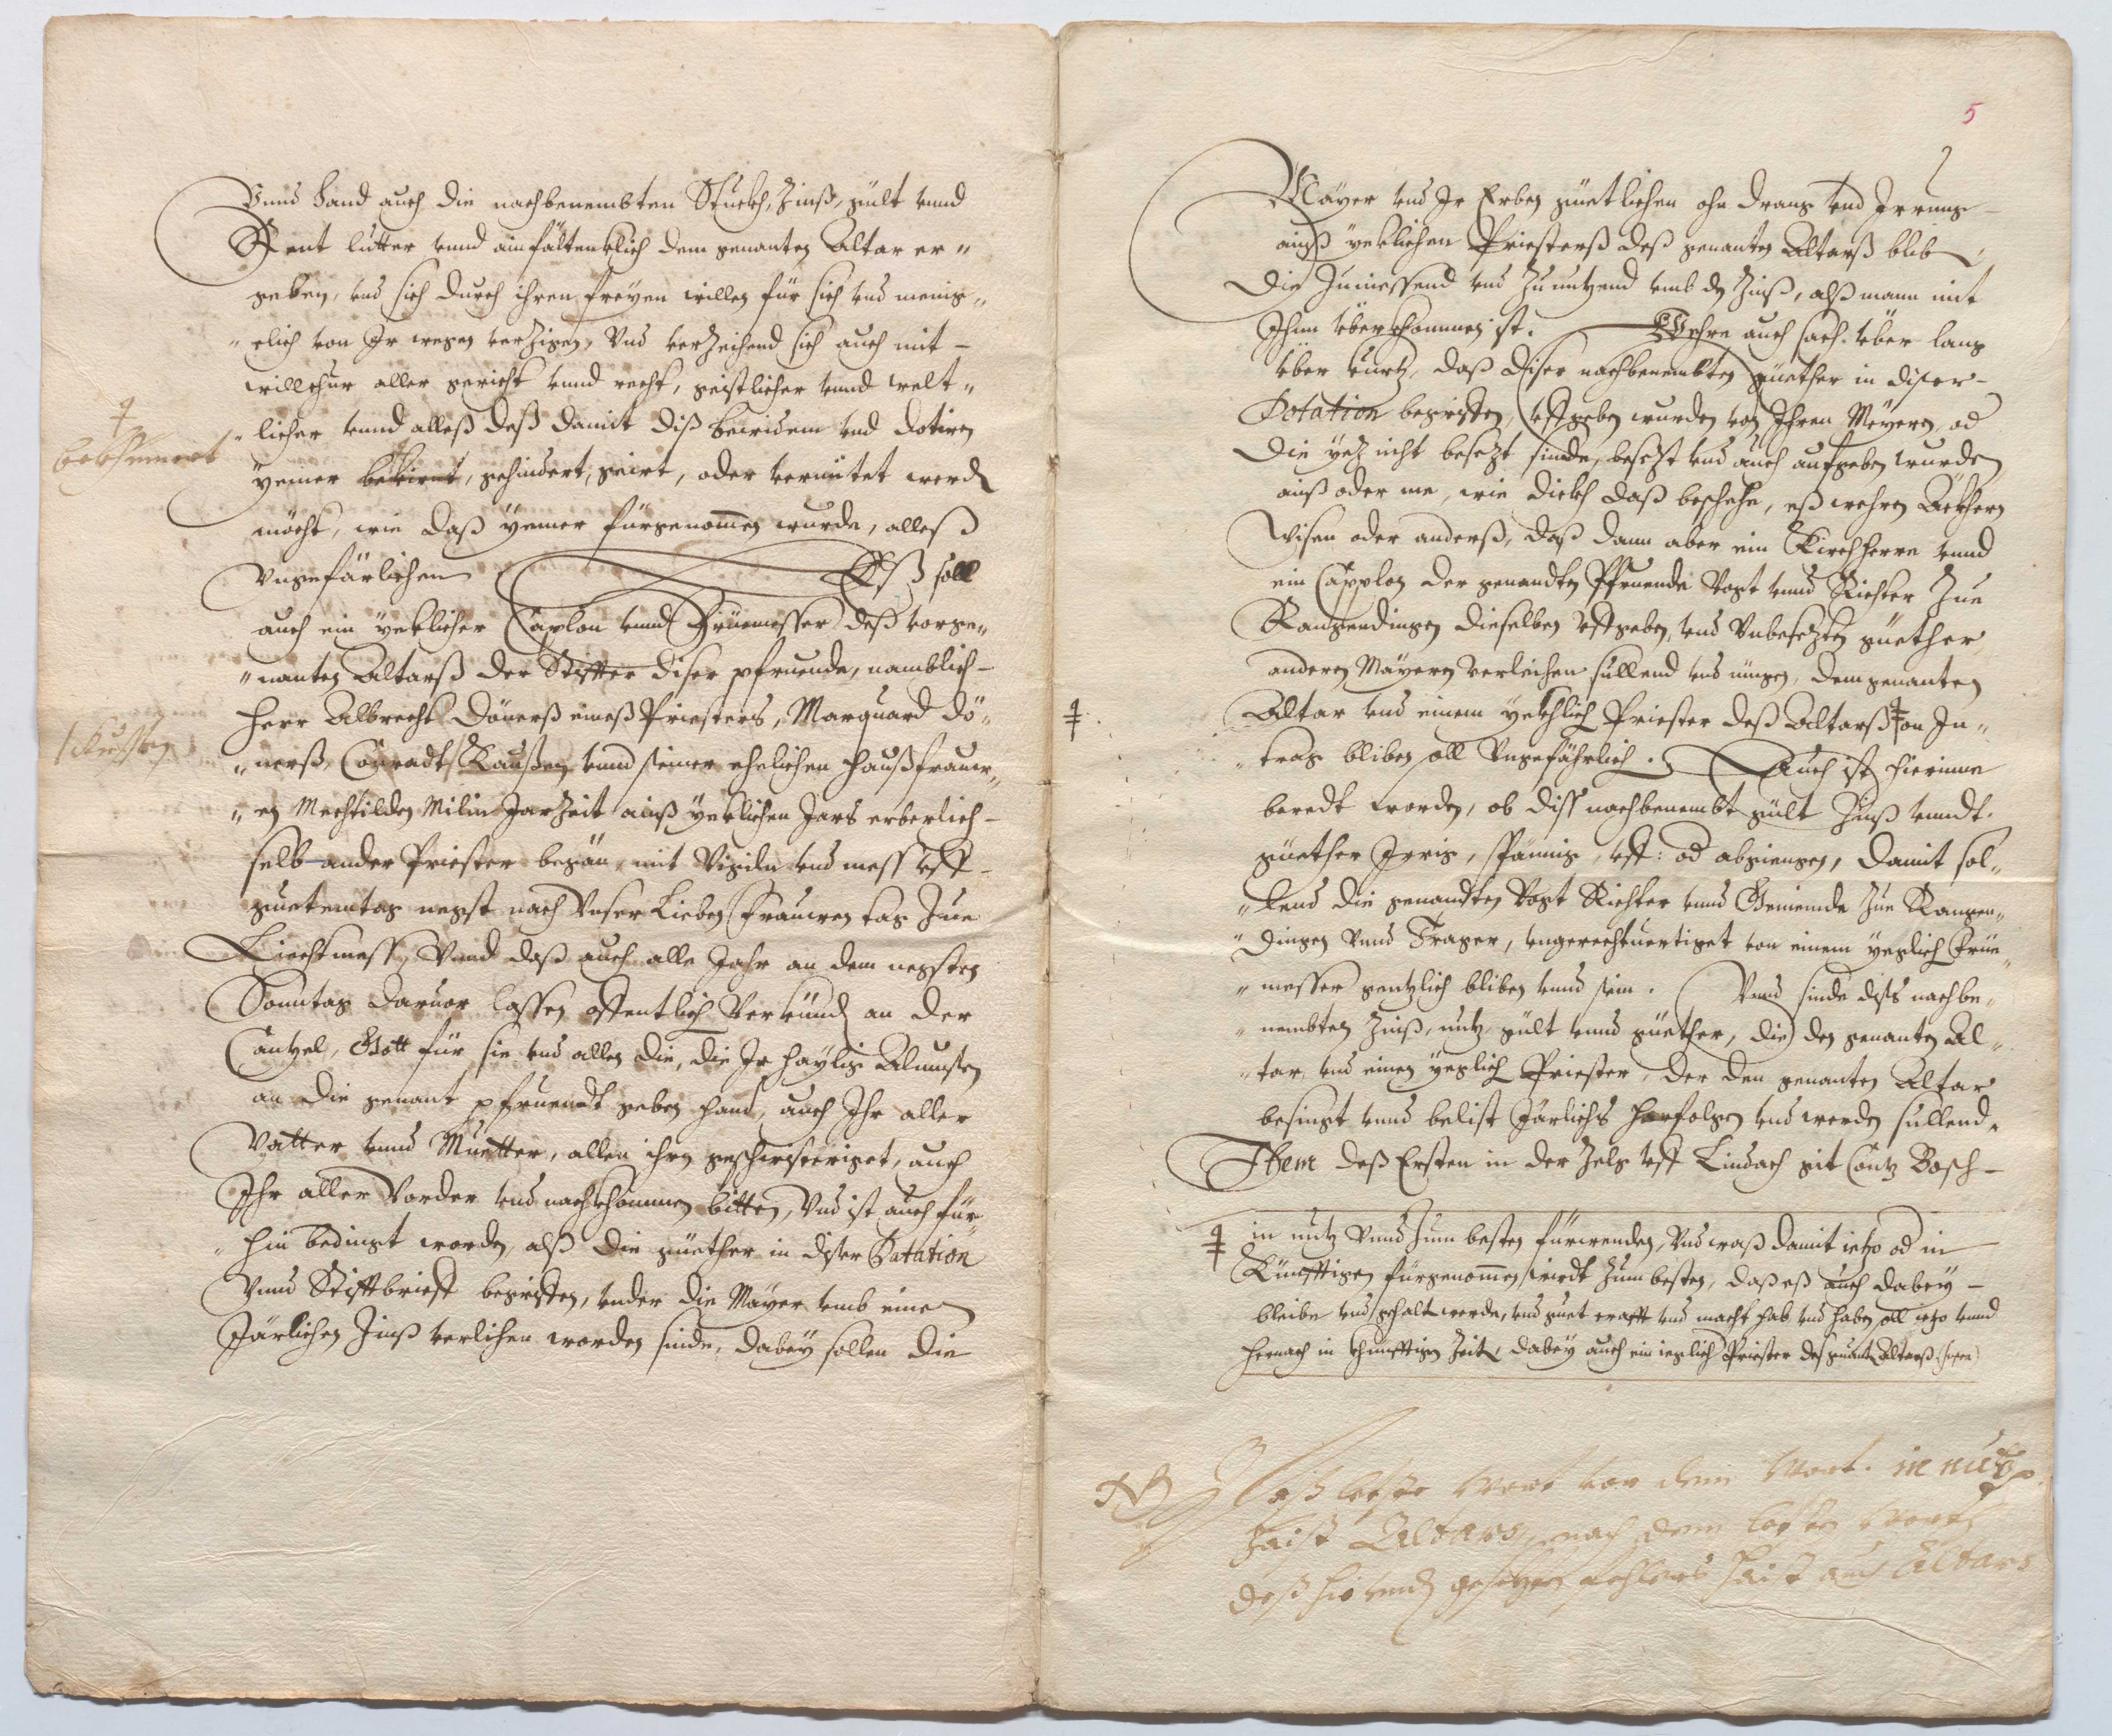 Vnnd hand auch die nachbenembten Stuckh, Zinß, gült vnnd
Rent lutter vnnd ainfältenklich dem genanten Altar er„
geben, vnd sich durch ihren freyen willen für sich vnd menig„
„klich von Ir wegen verzigen, Vnd verzeihend sich auch mit
willchur aller gericht vnnd recht, geistlicher vnnd welt„
„licher vnnd alleß deß damit diß bewidem vnd dotiren
yemer bekrenkt, gehindert, geirt, oder vernütet werden
möcht, wie daß yemer fürgenommen wurde, alleß
Vngefärlichen Eß soll
auch ein yeklicher Caplon vnnd Früemesser deß vorge„
„nanten Altarß der Stifter diser pfruende, namblich
Herr Albrecht Dönerß eineß Priesters, Marquard Dö„
„nerß, Conradt Kaußen vnnd seiner ehelichen Haußfrauw„
„en Mechtilden Milin Jarzeit aines yeklichen Jars erberlich
selb ander Priester began, mit Vigiln vnd mess vff
guetemtag negst nach Vnser Lieben Frauwen tag Zue
Liechtmess, Vnnd daß auch alle Jahr an dem negsten
Sonntag daruor lassen offentlich Verkünden an der
Cantzel, Gott für sie vnd allen die, die Ir haylig Almusen
an die genant pfruendt geben hand, auch Ihr aller
Vatter vnnd Muetter, allen ihrn geschwisterigt, auch
Ihr aller Vorder vnd nachkhommen bitten, Vnd ist auch für„
„hin bedingt worden, alß die güether in diser Datation
Vnnd Stifftbrieff begriffen, vnder die Mayer vmb einen
Järlichen Zinß verlihen worden sinde, dabey sollen die
5
Mayer vnd Ir Erben güetlichen ohn drang vnd Irrung
aineß yeklichen Priesterß deß genanten Altarß bliben
die Zuniessend vnd Zunutzend vmb den Zinß, alß mann mit
Ihnn überkhommen ist. Wehre auch sach über lang
über kurtz, daß diser nachbenembten güether in diser
Dotation begriffen, vffgeben wurden von Ihren Meyern, od
die yetz nicht besezt sinde, besezt vnd auch aufgeben wurden
ainß oder me, wie dickh daß beschehe, eß wehren Äckhern
Wisen oder anderß, daß dann aber ein Kirchherre vnnd
ein Capplon der genandten Pfruende Vogt vnnd Richter Zue
Rangendingen dieselben vffgeben, vnd Vnbesezten güether
anderen Mayern verleihen sullend vnd mügen, dem genanten
Altar vnd einem yeklich Priester deß Altarß ‡ on In„
„trag bliben soll Vngefährlich. Auch ist hierinne
beredt worden, ob diss nachbenembt gült Zinß vnndt
güether Irrig, spännig, vff: od abgiengen, damit sol„
„lend die genandten Vogt Richter vnnd Gemeinde Zue Rangen„
„dingen Vnnd Trager, vngerechtuertiget von einem yeglich Früe„
„messer gentzlich bliben vnnd sein. Vnnd sinde diß nachbe„
„nembten Zinß, nutz, gült vnnd güether, die den genanten Al„
„tar vnd einen yeglich Priester, der den genanten Altar
besingt vnnd belist Järlichs herfolgen vnd werden sullend.
Ittem deß Ersten in der Zelg vff Lindach git Cuntz Bosch
‡ in nutz Vnnd Zum besten fürwenden, Vnd waß damit ietzo od in
Künfftigen fürgenommen wirdt Zum besten, daß eß auch dabey
bleibe vnd gehalt werde, vnd guet crafft vnd macht hab vnd haben soll ietzo vnnd
hernach in khünfftigen Zeiten, dabey auch ein ieglich Priester deß genanten Altarß
NB Daß letste Wort vor dem Wort. in nutz
haist Altars, nach dem letsten Wort
deß hie vnden gesetzten haist auch Altars